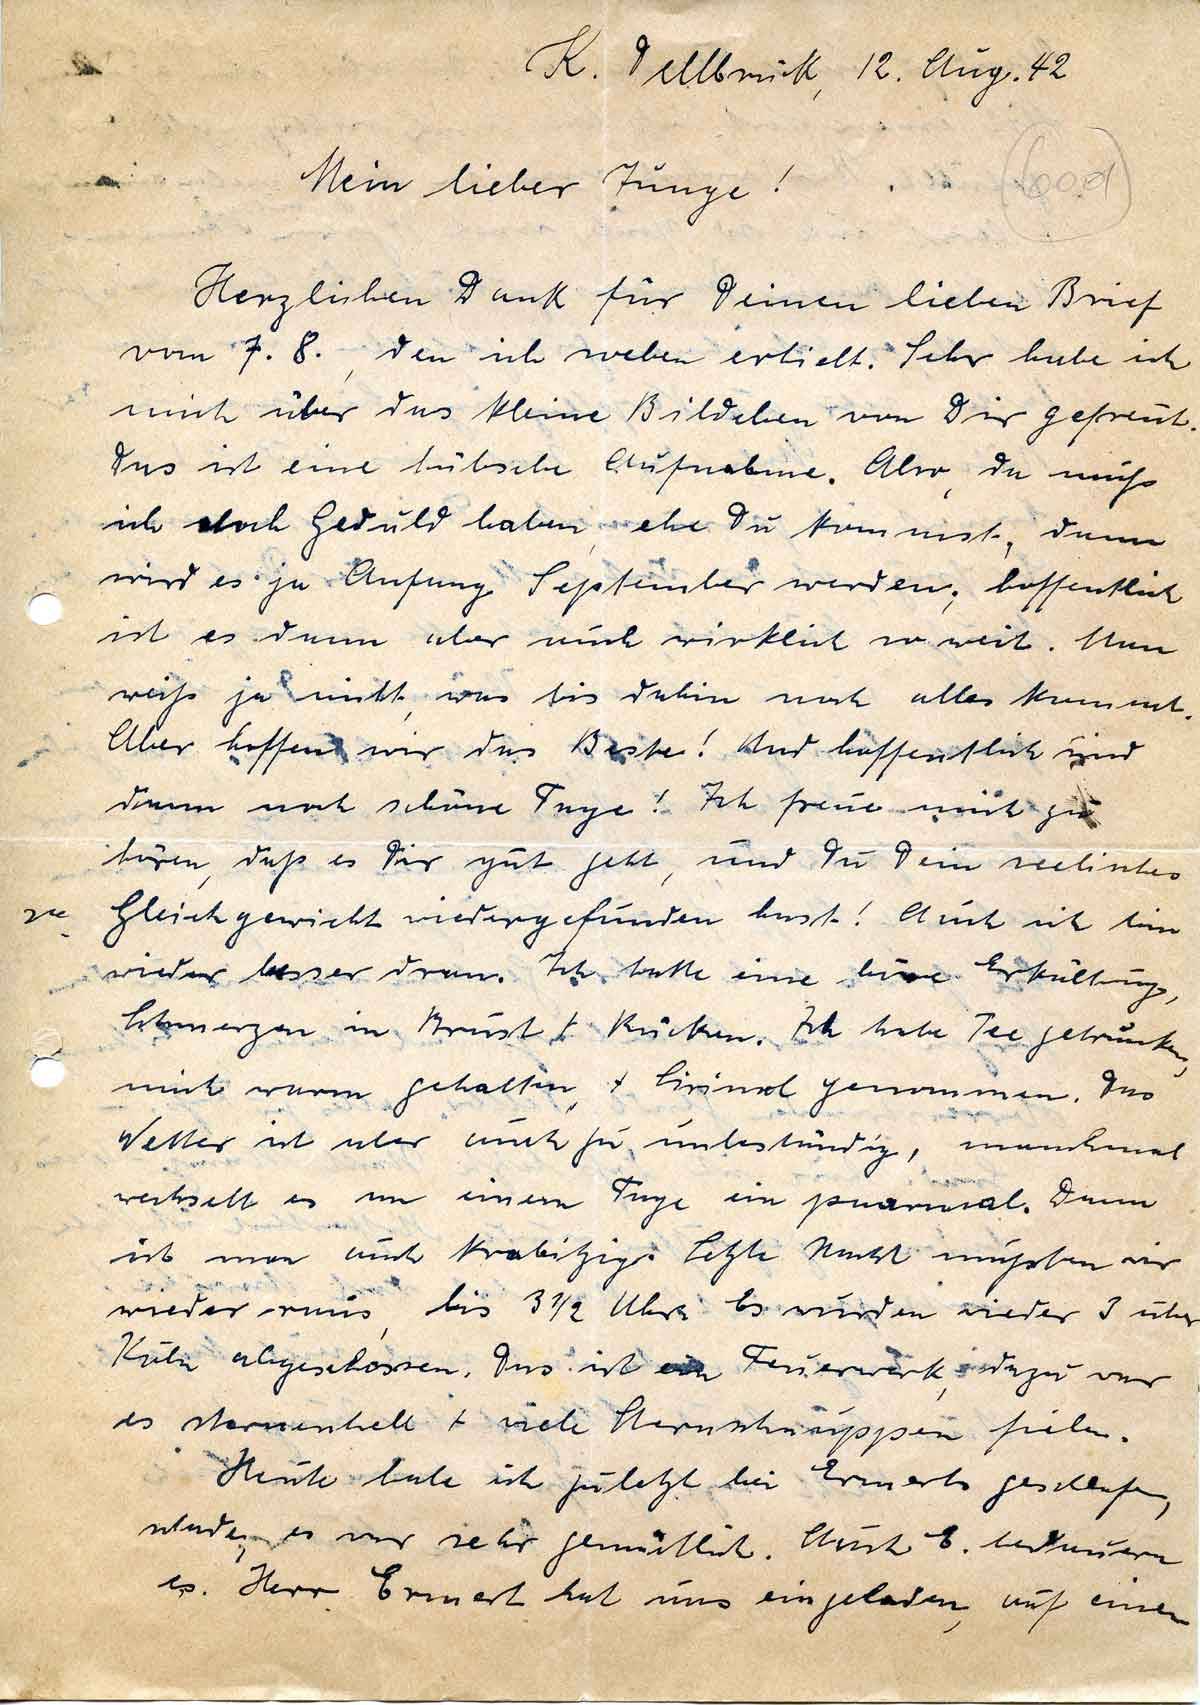 K. Dellbrück, 12. Aug. 42
Mein lieber Junge!
Herzlichen Dank für Deinen lieben Brief
vom 7. 8., den ich soeben erhielt. Sehr habe ich
mich über das kleine Bildchen von Dir gefreut.
Das ist eine hübsche Aufnahme. Also, da muß
ich doch Geduld haben, ehe Du kommst, dann
wird es ja Anfang September werden, hoffentlich
ist es dann aber auch wirklich so weit. Man
weiß ja nicht, was bis dahin noch alles kommt.
Aber hoffen wir das Beste! Und hoffentlich sind
dann noch schöne Tage! Ich freue mich zu
hören, daß es Dir gut geht, und Du Dein seelisches
Gleichgewicht wiedergefunden hast! Auch ich bin
wieder besser dran. Ich hatte eine böse Erkältung,
Schmerzen in Brust + Rücken. Ich habe Tee getrunken,
mich warm gehalten, + genommen. Das
Wetter ist aber auch zu unbeständig, manchmal
wechselt es an einem Tage ein paarmal. Dann
ist man auch krabitzig. Letzte Nacht mußten wir
wieder raus, bis 3 1/2 Uhr. Es wurden wieder 3 über
Köln abgeschossen. Das ist ein Feuerwerk, dazu war
es sternenhell + viele Sternschnuppen fielen.
Heute habe ich zuletzt bei Ermerts geschlafen,
schade, es war sehr gemütlich. Auch E. bedauern
es. Herr Ermert hat uns eingeladen, auf einen